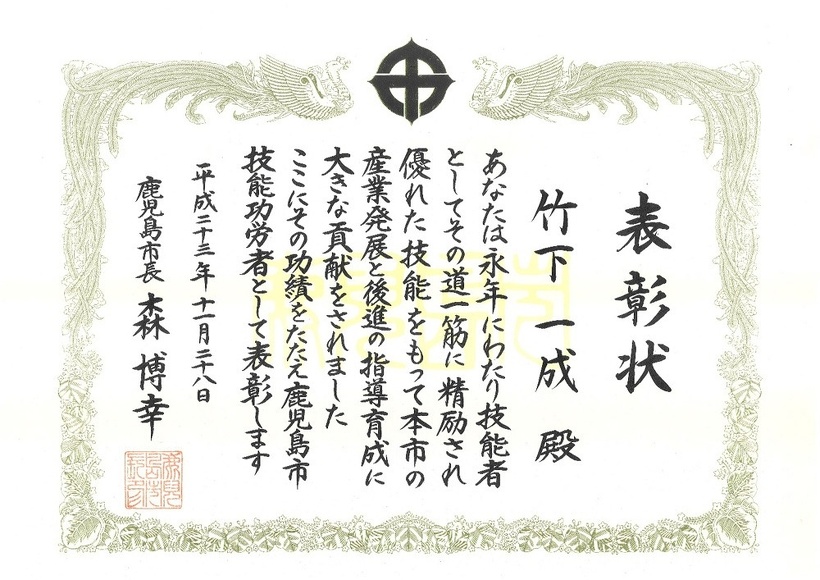 表彰状
竹下一成殿
あなたは永年にわたり技能者
としてその道一筋に精励され
優れた技能をもって本市の
産業発展と後進の指導育成に
大きな貢献をされました
ここにその功績をたたえ鹿児島市
技能功労者として表彰します
平成二十三年十一月二十八日
鹿児島市長 森博幸